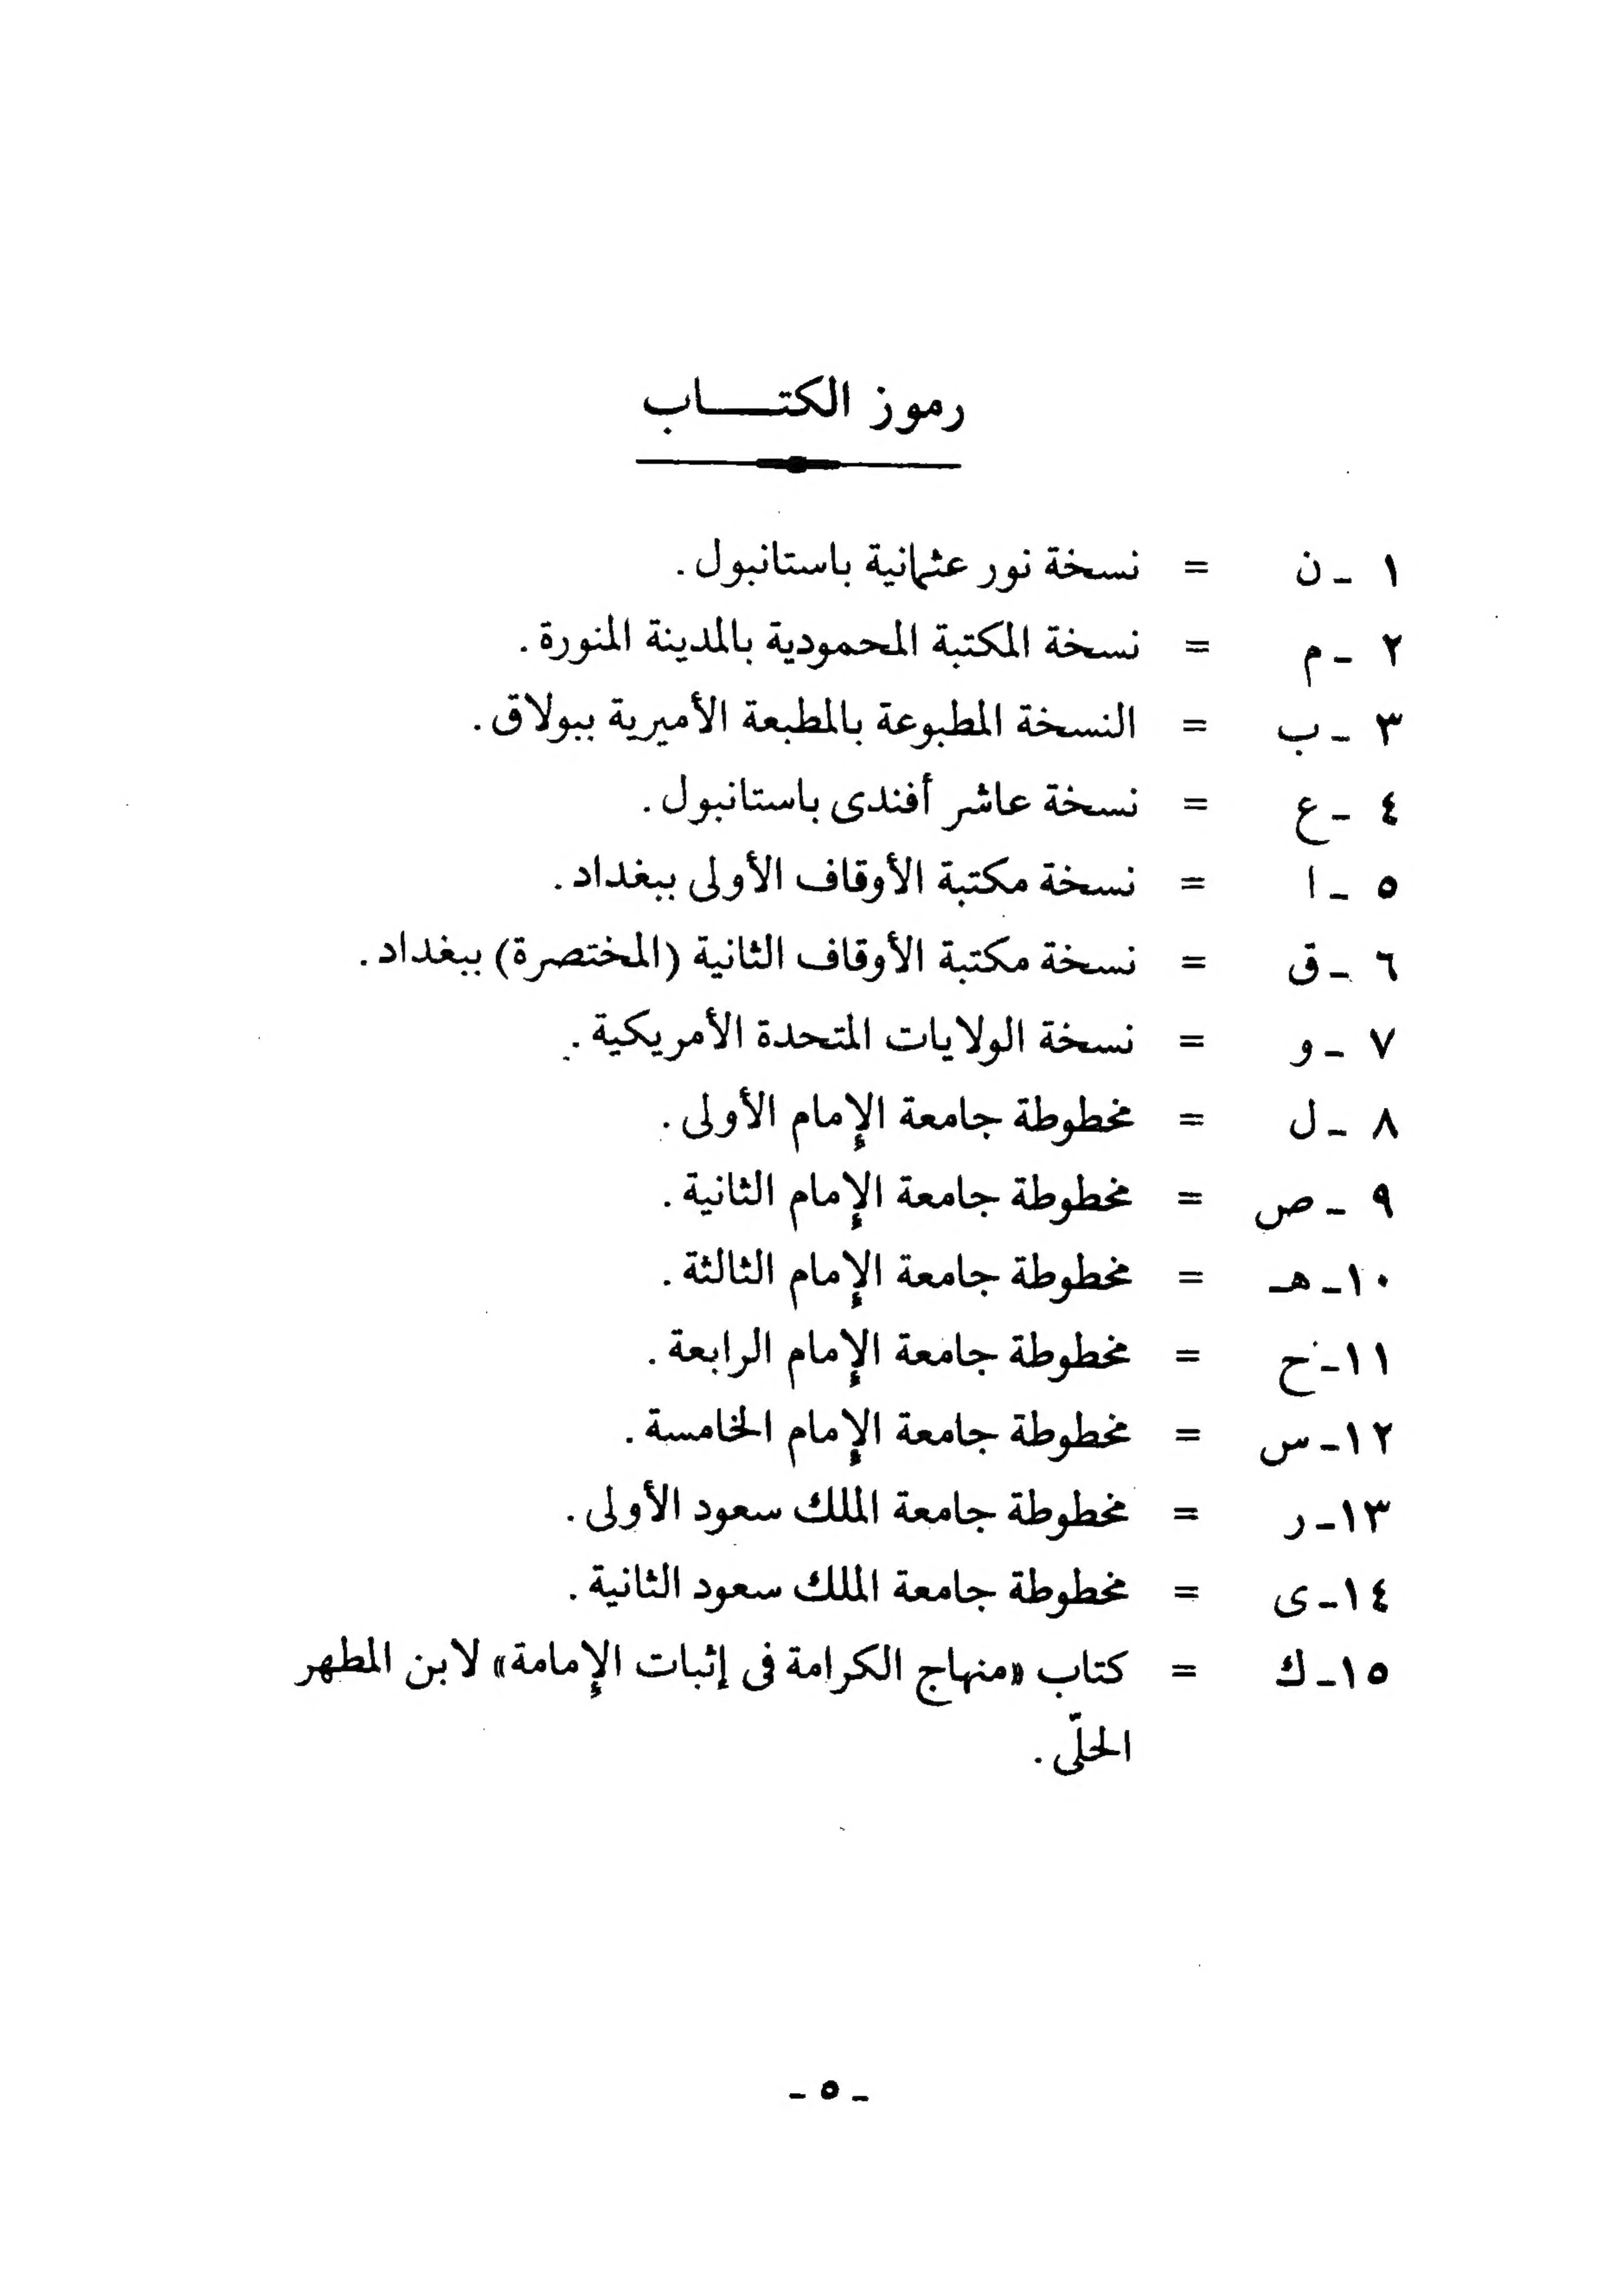 رموز الكتـــاب
١ ـ ن = نسخة نور عثمانية باستانبول .
٢ ـ م = نسخة المكتبة المحمودية بالمدينة المنورة .
٣ ـ ب = النسخة المطبوعة بالمطبعة الأميرية ببولاق .
٤ ـ ع = نسخة عاشر أفندى باستانبول .
٥ ـ ا = نسخة مكتبة الأوقاف الأولى ببغداد .
٦ ـ ق = نسخة مكتبة الأوقاف الثانية (المختصرة) ببغداد .
٧ ـ و = نسخة الولايات المتحدة الأمريكية .
٨ ـ ل = مخطوطة جامعة الإمام الأولى .
٩ ـ ص = مخطوطة جامعة الإمام الثانية .
١٠ـ هـ = مخطوطة جامعة الإمام الثالثة .
١١ـ ح = مخطوطة جامعة الإمام الرابعة .
١٢ـ س = مخطوطة جامعة الإمام الخامسة .
١٣ـ ر = مخطوطة جامعة الملك سعود الأولى .
١٤ـ ى = مخطوطة جامعة الملك سعود الثانية .
١٥ـ ك = كتاب «منهاج الكرامة فى إثبات الإمامة» لابن المطهر
الحلّى .
ـ ٥ ـ